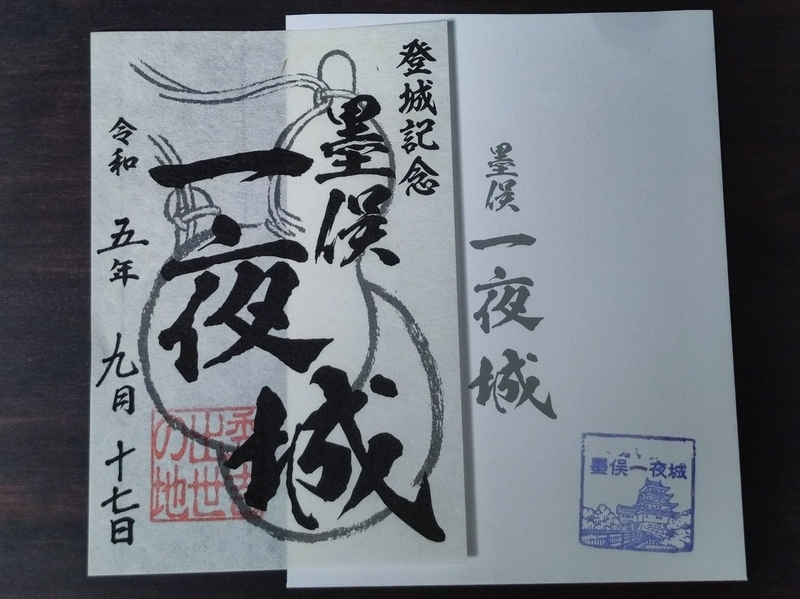 登城記念
墨俣
一夜城
令和 五年 九月 十七日
秀吉
出世
の地
墨俣
一夜城
墨俣一夜城